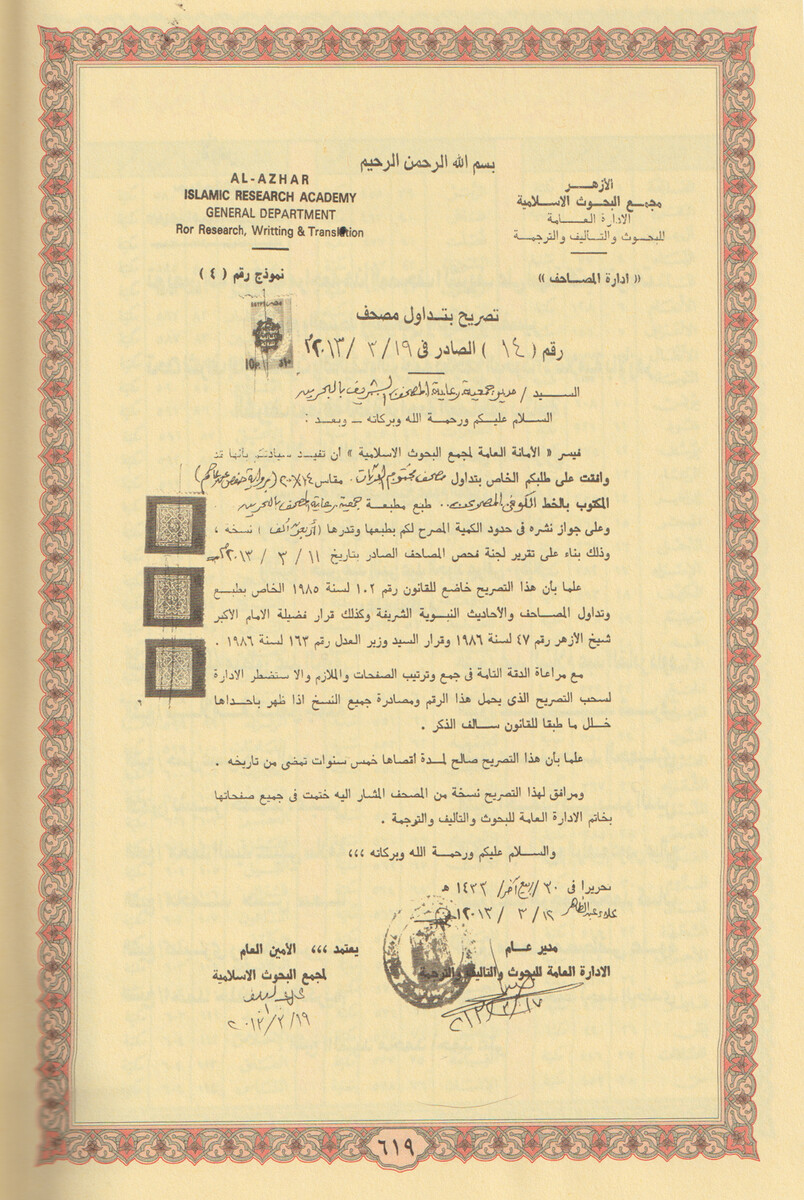 بسم الله الرحمن الرحيم
AL-AZHAR
ISLAMIC RESEARCH ACADEMY
GENERAL DEPARTMENT
Ror Research, Writting & Translation
الأزهـــر
مجمع البحوث الاسلامية
الادارة العـــامة
للبحوث والتأليف والترجمة
« ادارة المصاحف »
نموذج رقم ( ٤ )
تصريح بتداول مصحف
رقم ( ١٤ ) الصادر فى ١٩ / ٣ / ٢٠١٣م
السيد / مدير جمعية رعاية المصحف الشريف بالبحرين
السلام عليكم ورحمة الله وبركاته ــ وبعد :
فيسر « الأمانة العامة لمجمع البحوث الاسلامية » ان تفيد سيادتكم بانها قد
وافقت على طلبكم الخاص بتداول مصحف مقاس ١٤×٢٠ ( برواية حفص عن عاصم )
المكتوب بالخط الكوفى .. طبع مطبعة جمعية رعاية المصحف بالبحرين
وعلى جواز نشره فى حدود الكمية المصرح لكم بطبعها وقدرها ( أربعون ألف ) نسخة ،
وذلك بناء على تقرير لجنة فحص المصاحف الصادر بتاريخ ١١ / ٣ / ٢٠١٣م
علما بأن هذا التصريح خاضع للقانون رقم ١٠٢ لسنة ١٩٨٥ الخاص بطبع
وتداول المصاحف والأحاديث النبوية الشريفة وكذلك قرار فضيلة الامام الأكبر
شيخ الأزهر رقم ٤٧ لسنة ١٩٨٦ وقرار السيد وزير العدل رقم ١٦٣ لسنة ١٩٨٦ .
مع مراعاة الدقة التامة فى جمع وترتيب الصفحات والملازم والا ستضطر الادارة
لسحب التصريح الذى يحمل هذا الرقم ومصادرة جميع النسخ اذا ظهر باحداها
خلل ما طبقا للقانون سالف الذكر .
علما بأن هذا التصريح صالح لمدة اقصاها خمس سنوات تمضى من تاريخه .
ومرافق لهذا التصريح نسخة من المصحف المشار اليه ختمت فى جميع صفحاتها
بخاتم الادارة العامة للبحوث والتأليف والترجمة .
والسلام عليكم ورحمة الله وبركاته ،،،
تحريرا فى ٢٠ / ربيع آخر / ١٤٣٢ هـ
١٢ / ٣ / ٢٠١٣
علاء عبد الظاهر
مدير عام
الادارة العامة للبحوث والتأليف والترجمة
١٧ / ٣ / ٢٠١٣
يعتمد ،،، الأمين العام
لمجمع البحوث الاسلامية
١٩ / ٣ / ٢٠١٣
٦١٩